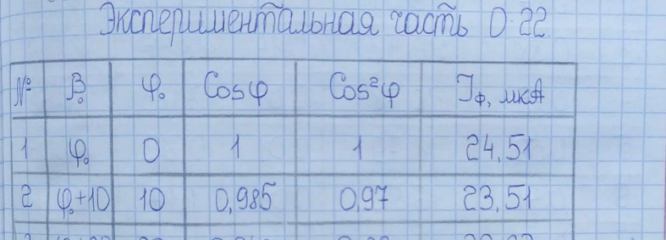 Экспериментальная часть О-22
№ β° φ° Cosφ Cos²φ Iф, мкА
1 φ° 0 1 1 24,51
2 φ°+10 10 0,985 0,97 23,51